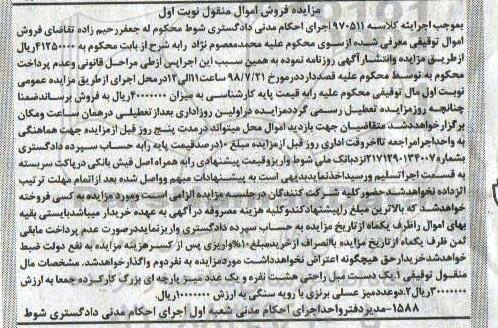 مزایده فروش اموال منقول نوبت اول
بموجب اجرائیه کلاسه ۹۷۰۵۱۱ اجرای احکام مدنی دادگستری شوط محکوم له جعفر رحیم زاده تقاضای فروش
اموال توقیفی معرفی شده از سوی محکوم علیه محمد معصوم نژاد رابه شرح از بابت محکوم به ۴۱۲۵۰۰۰۰ ریال
از طریق مزایده وانتشار آگهی روزنامه نموده به همین سبب این اجرا پس از طی مراحل قانونی وعدم پرداخت
محکوم به توسط محکوم علیه قصددارددرمورخ ۹۸/۷/۲۱ ازساعت ۱۱الی ۱۲درمحل اجرای ازطریق مزایده عمومی
نوبت اول مال توقیفی محکوم علیه رابه قیمت پایه کارشناسی به میزان ۴۰۰۰۰۰۰۰ریال به فروش برساندضمنا
چنانچه روزمزایده تعطیل رسمی گرددمزایده دراولین روزاداری بعدازتعطیلی درهمان ساعت ومکان
برگزارخواهدشد متقاضیان جهت بازدید اموال محل میتواند درمدت پنج روز قبل ازمزایده جهت هماهنگی
به واحداجرامراجعه تاآخروقت اداری روز قبل ازمزایده مبلغ ۱۰درصدقیمت پایه رابه حساب سپرده دادگستری
بشماره ۲۱۷۱۲۹۰۱۳۴۰۰۷نزدبانک ملی شوط واریزوقیمت پیشنهادی رابه همراه اصل فیش بانکی درپاکت سربسته
به قسمت اجراتسلیم ورسیداخذنمایدبدیهی است به پیشنهادات مبهم وواصل شده بعدازاتمام مهلت ترتیب
اثرداده نخواهدشدحضورکلیه شرکت کنندگان درجلسه مزایده الزامی است ومورد مزایده به کسی فروخته
خواهدشد که بالاترین مبلغ راپیشنهادکندوکلیه هزینه مصروفه درآگهی به عهده خریدار میباشدبایستی بقیه
بهای اموال راظرف یکماه ازتاریخ مزایده به حساب سپرده دادگستری واریزنمایددرصورت عدم پرداخت مابقی
ثمن ظرف یکماه ازتاریخ مزایده یاانصراف ازخریدمبلغ۱۰%واریزی پس از کسرهزینه مزایده به نفع دولت ضبط
خواهدشدخریدارحق هیچگونه اعتراض نخواهدداشت موردمزایده به نفردوم واگذارخواهدشد. مشخصات مال
منقول توقیفی ۱.یک دست مبل راحتی هشت نفره و یک عدد میز پارچه ای بزرگ کارکرده جمعا به ارزش
۳۰۰۰۰۰۰۰ریال۲.دوعددمیز عسلی برنزی با رویه سنگی به ارزش ۱۰۰۰۰۰۰۰ریال.
۱۵۸۸-مدیردفترواحداجرای احکام مدنی شعبه اول اجرای احکام مدنی دادگستری شوط